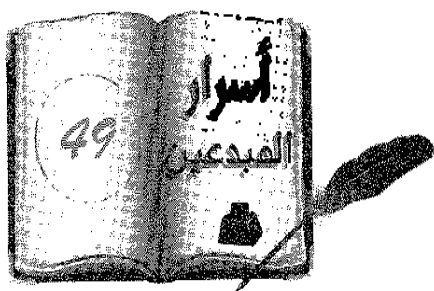 أسرار
المبدعين
49